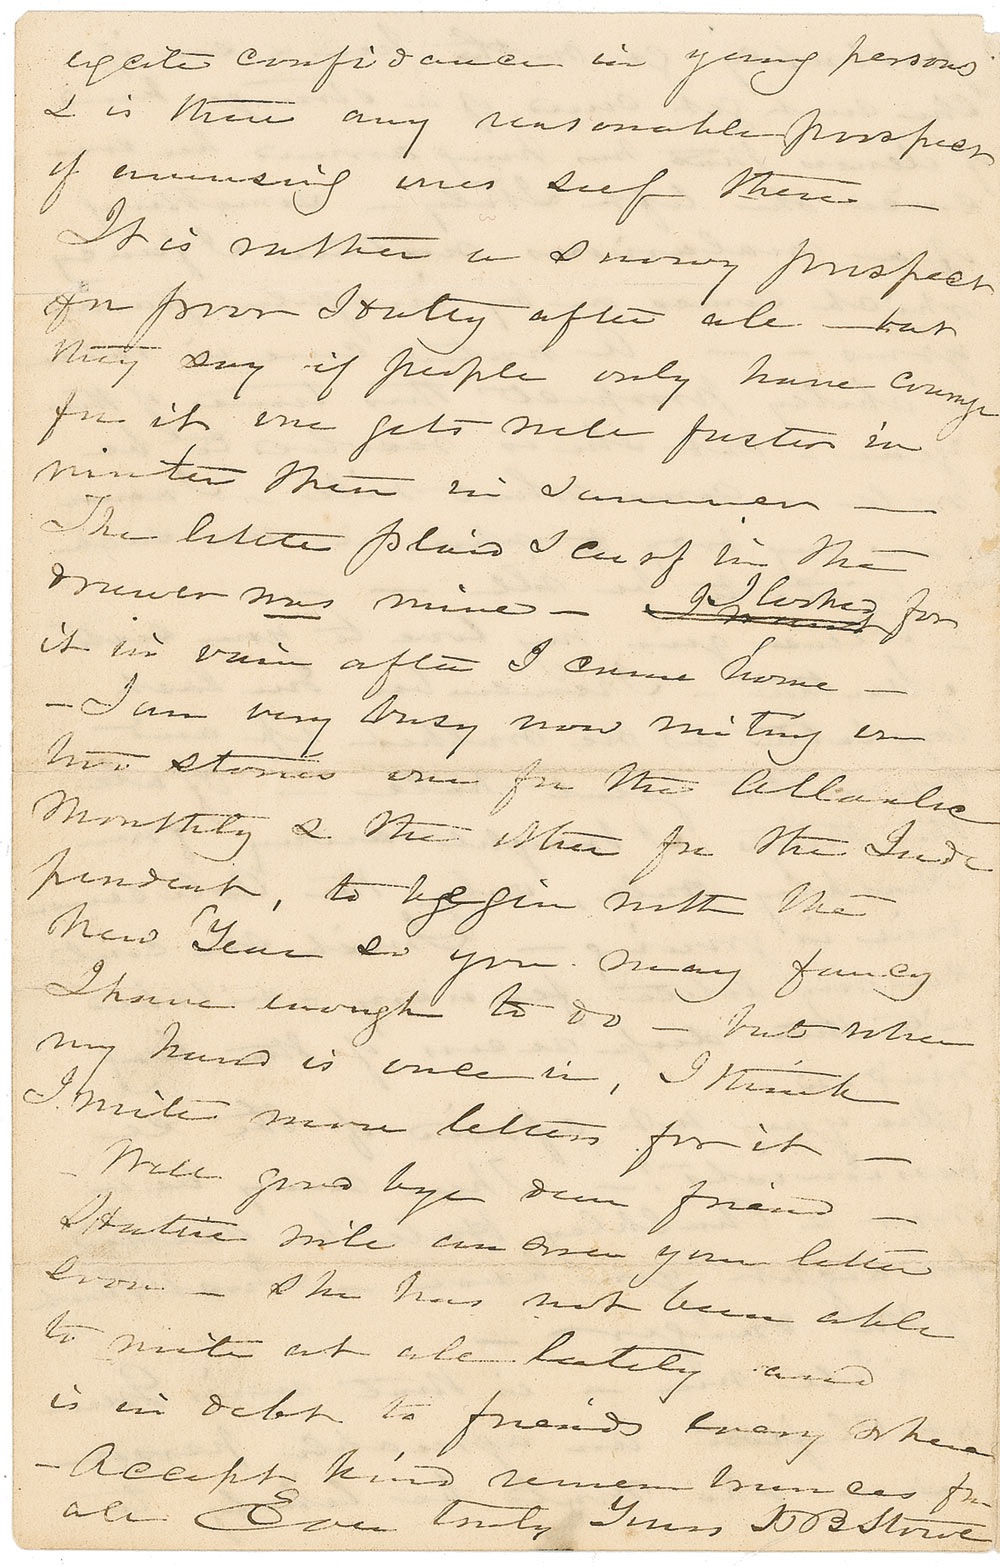 excite confidance in young persons
& is there any reasonable prospect
of amusing ones self there —
It is rather a snowy prospect
for poor Hatty after all — but
they say if people only have courage
for it one gets well faster in
winter than in summer —
The little plaid scarf in the
drawer was mine — I looked for
it in vain after I came home —
— I am very busy now writing on
two stories one for the Atlantic
Monthly & the other for the Inde
pendent, to begin with the
New Year so you may fancy
I have enough to do — but when
my hand is once in, I think
I write more letters for it —
— Well good bye dear friend —
Hattie will answer your letter
soon — She has not been able
to write at all lately and
is in debt to friends every where
— Accept kind remembrances from
all Ever truly Yours HBStowe